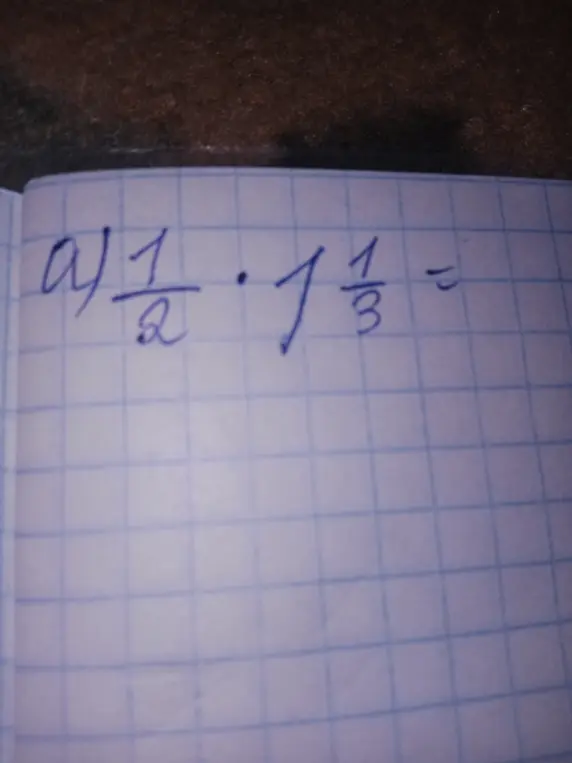 а) 1/2 · 1 1/3 =